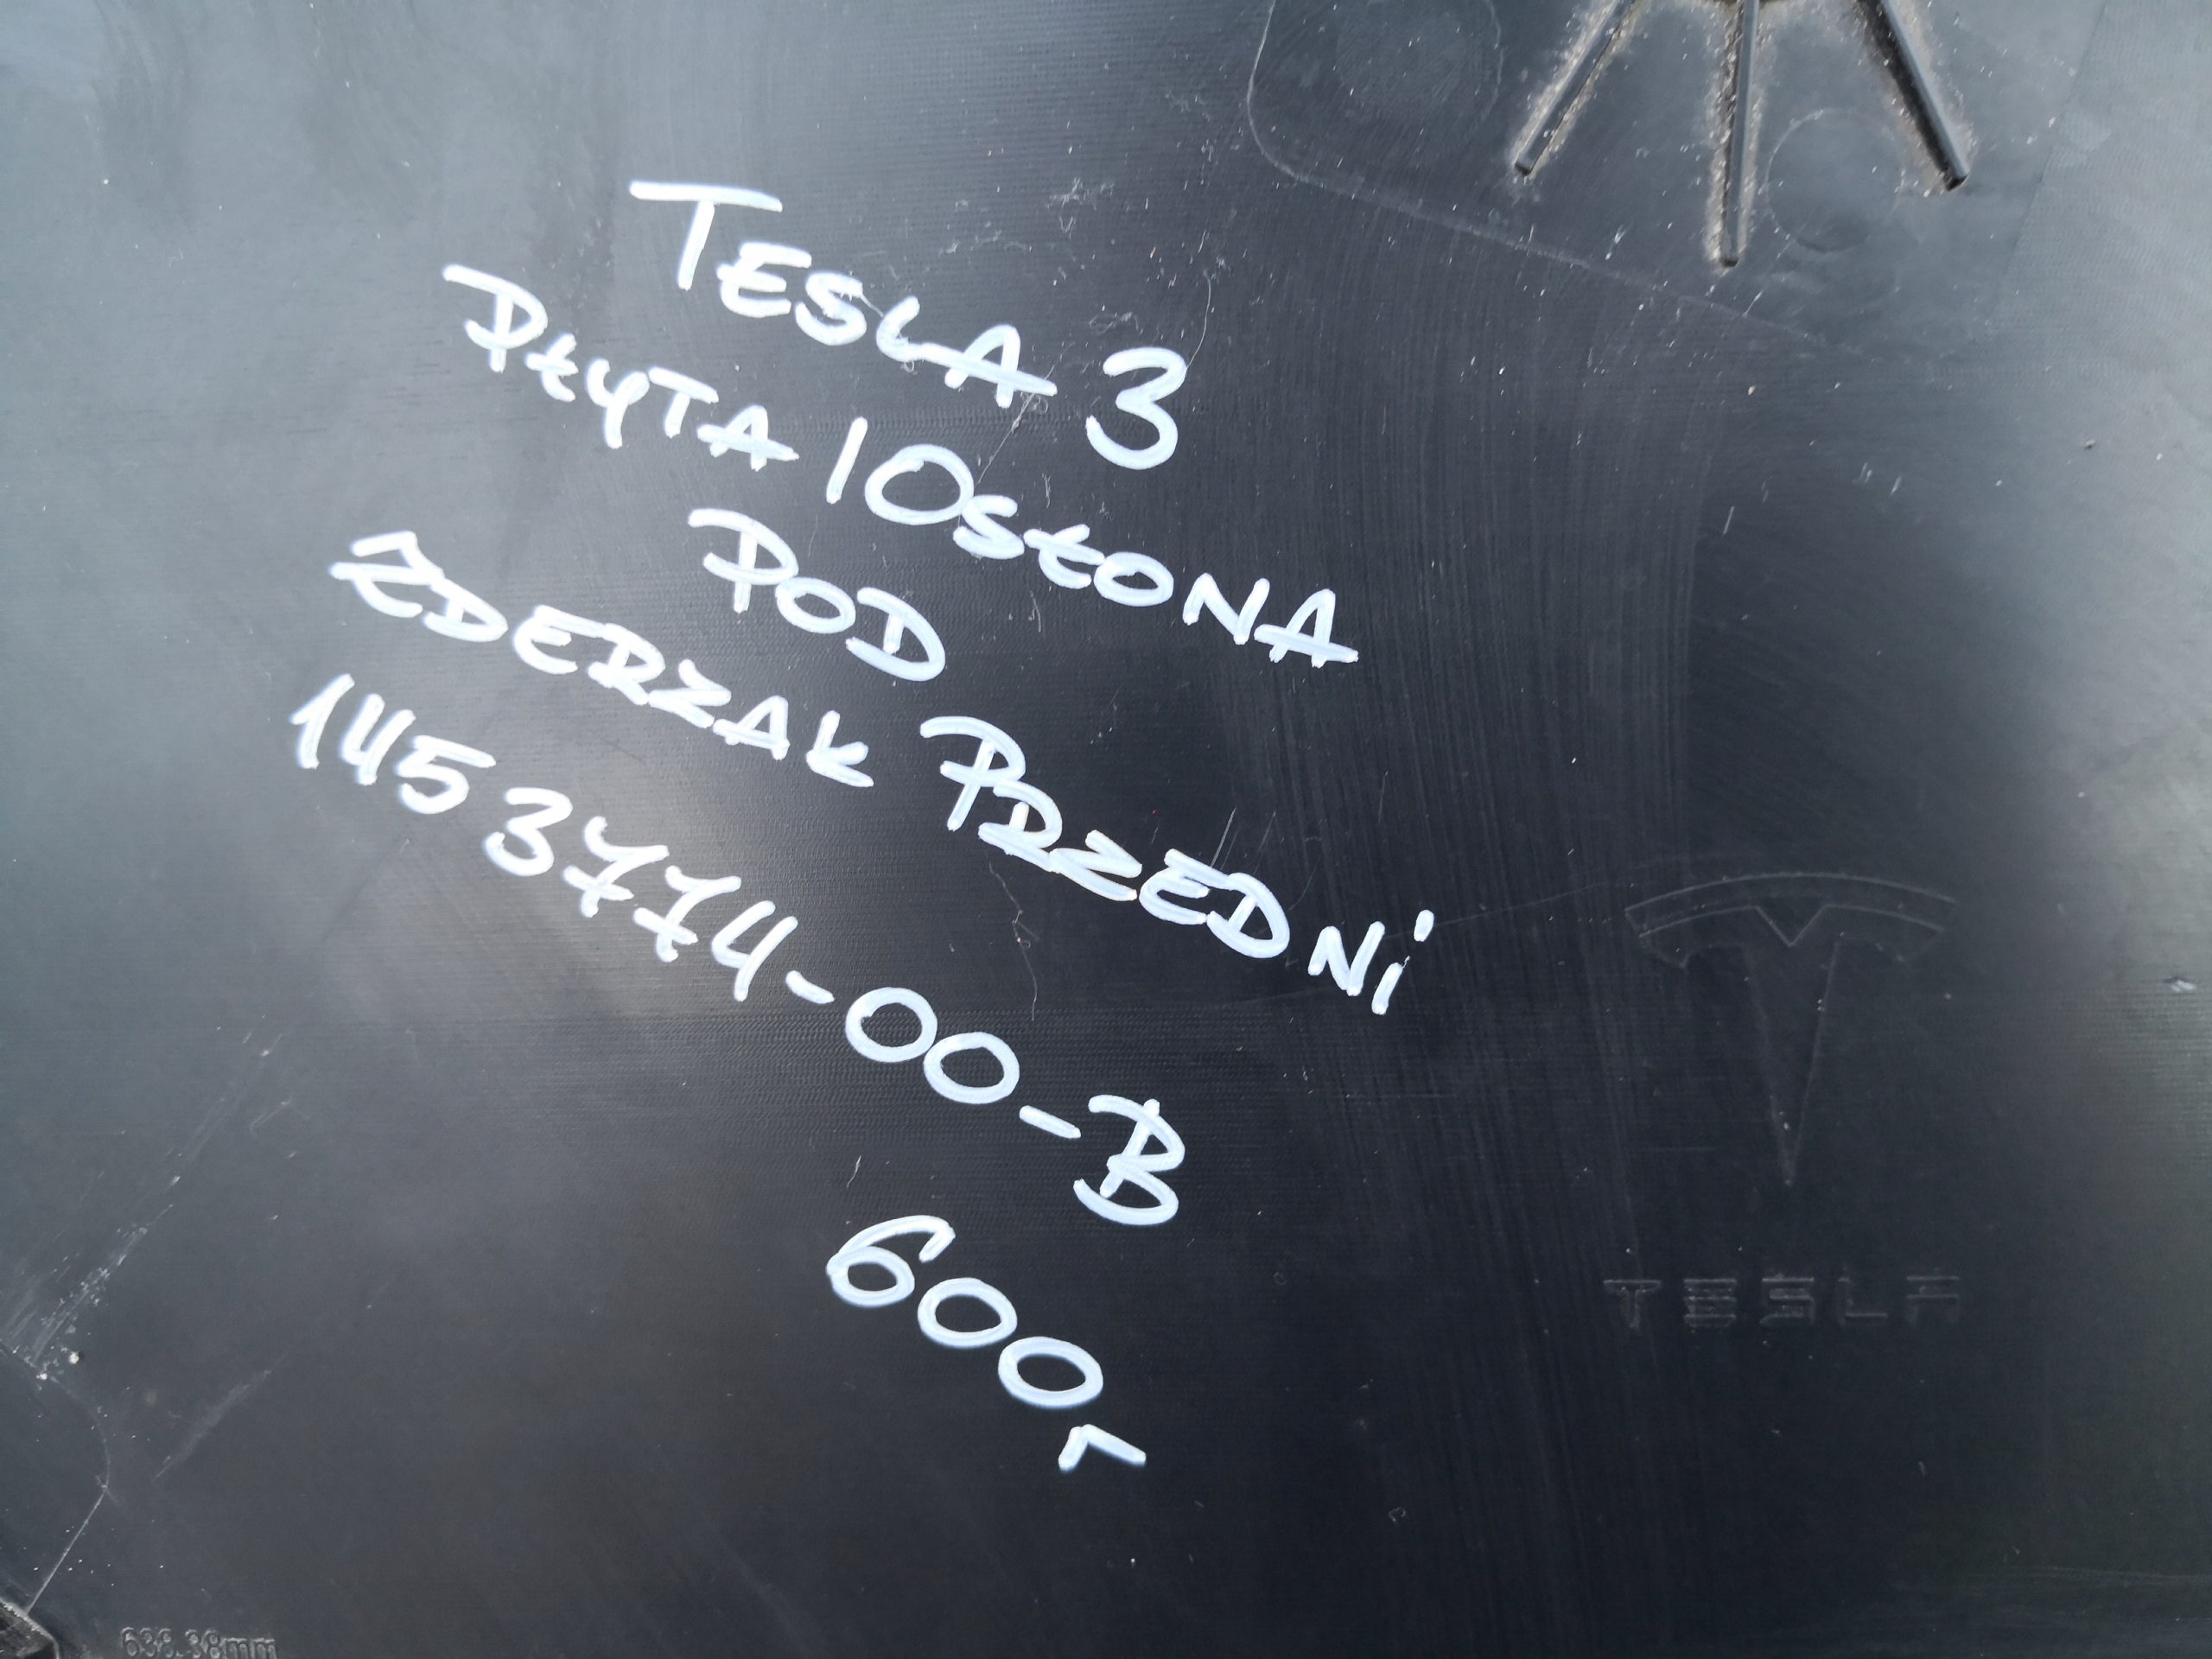 TESLA 3
PŁYTA / OSŁONA
POD
ZDERZAK PRZEDNI
1453774-00-B
600,-
TESLA
638.38mm